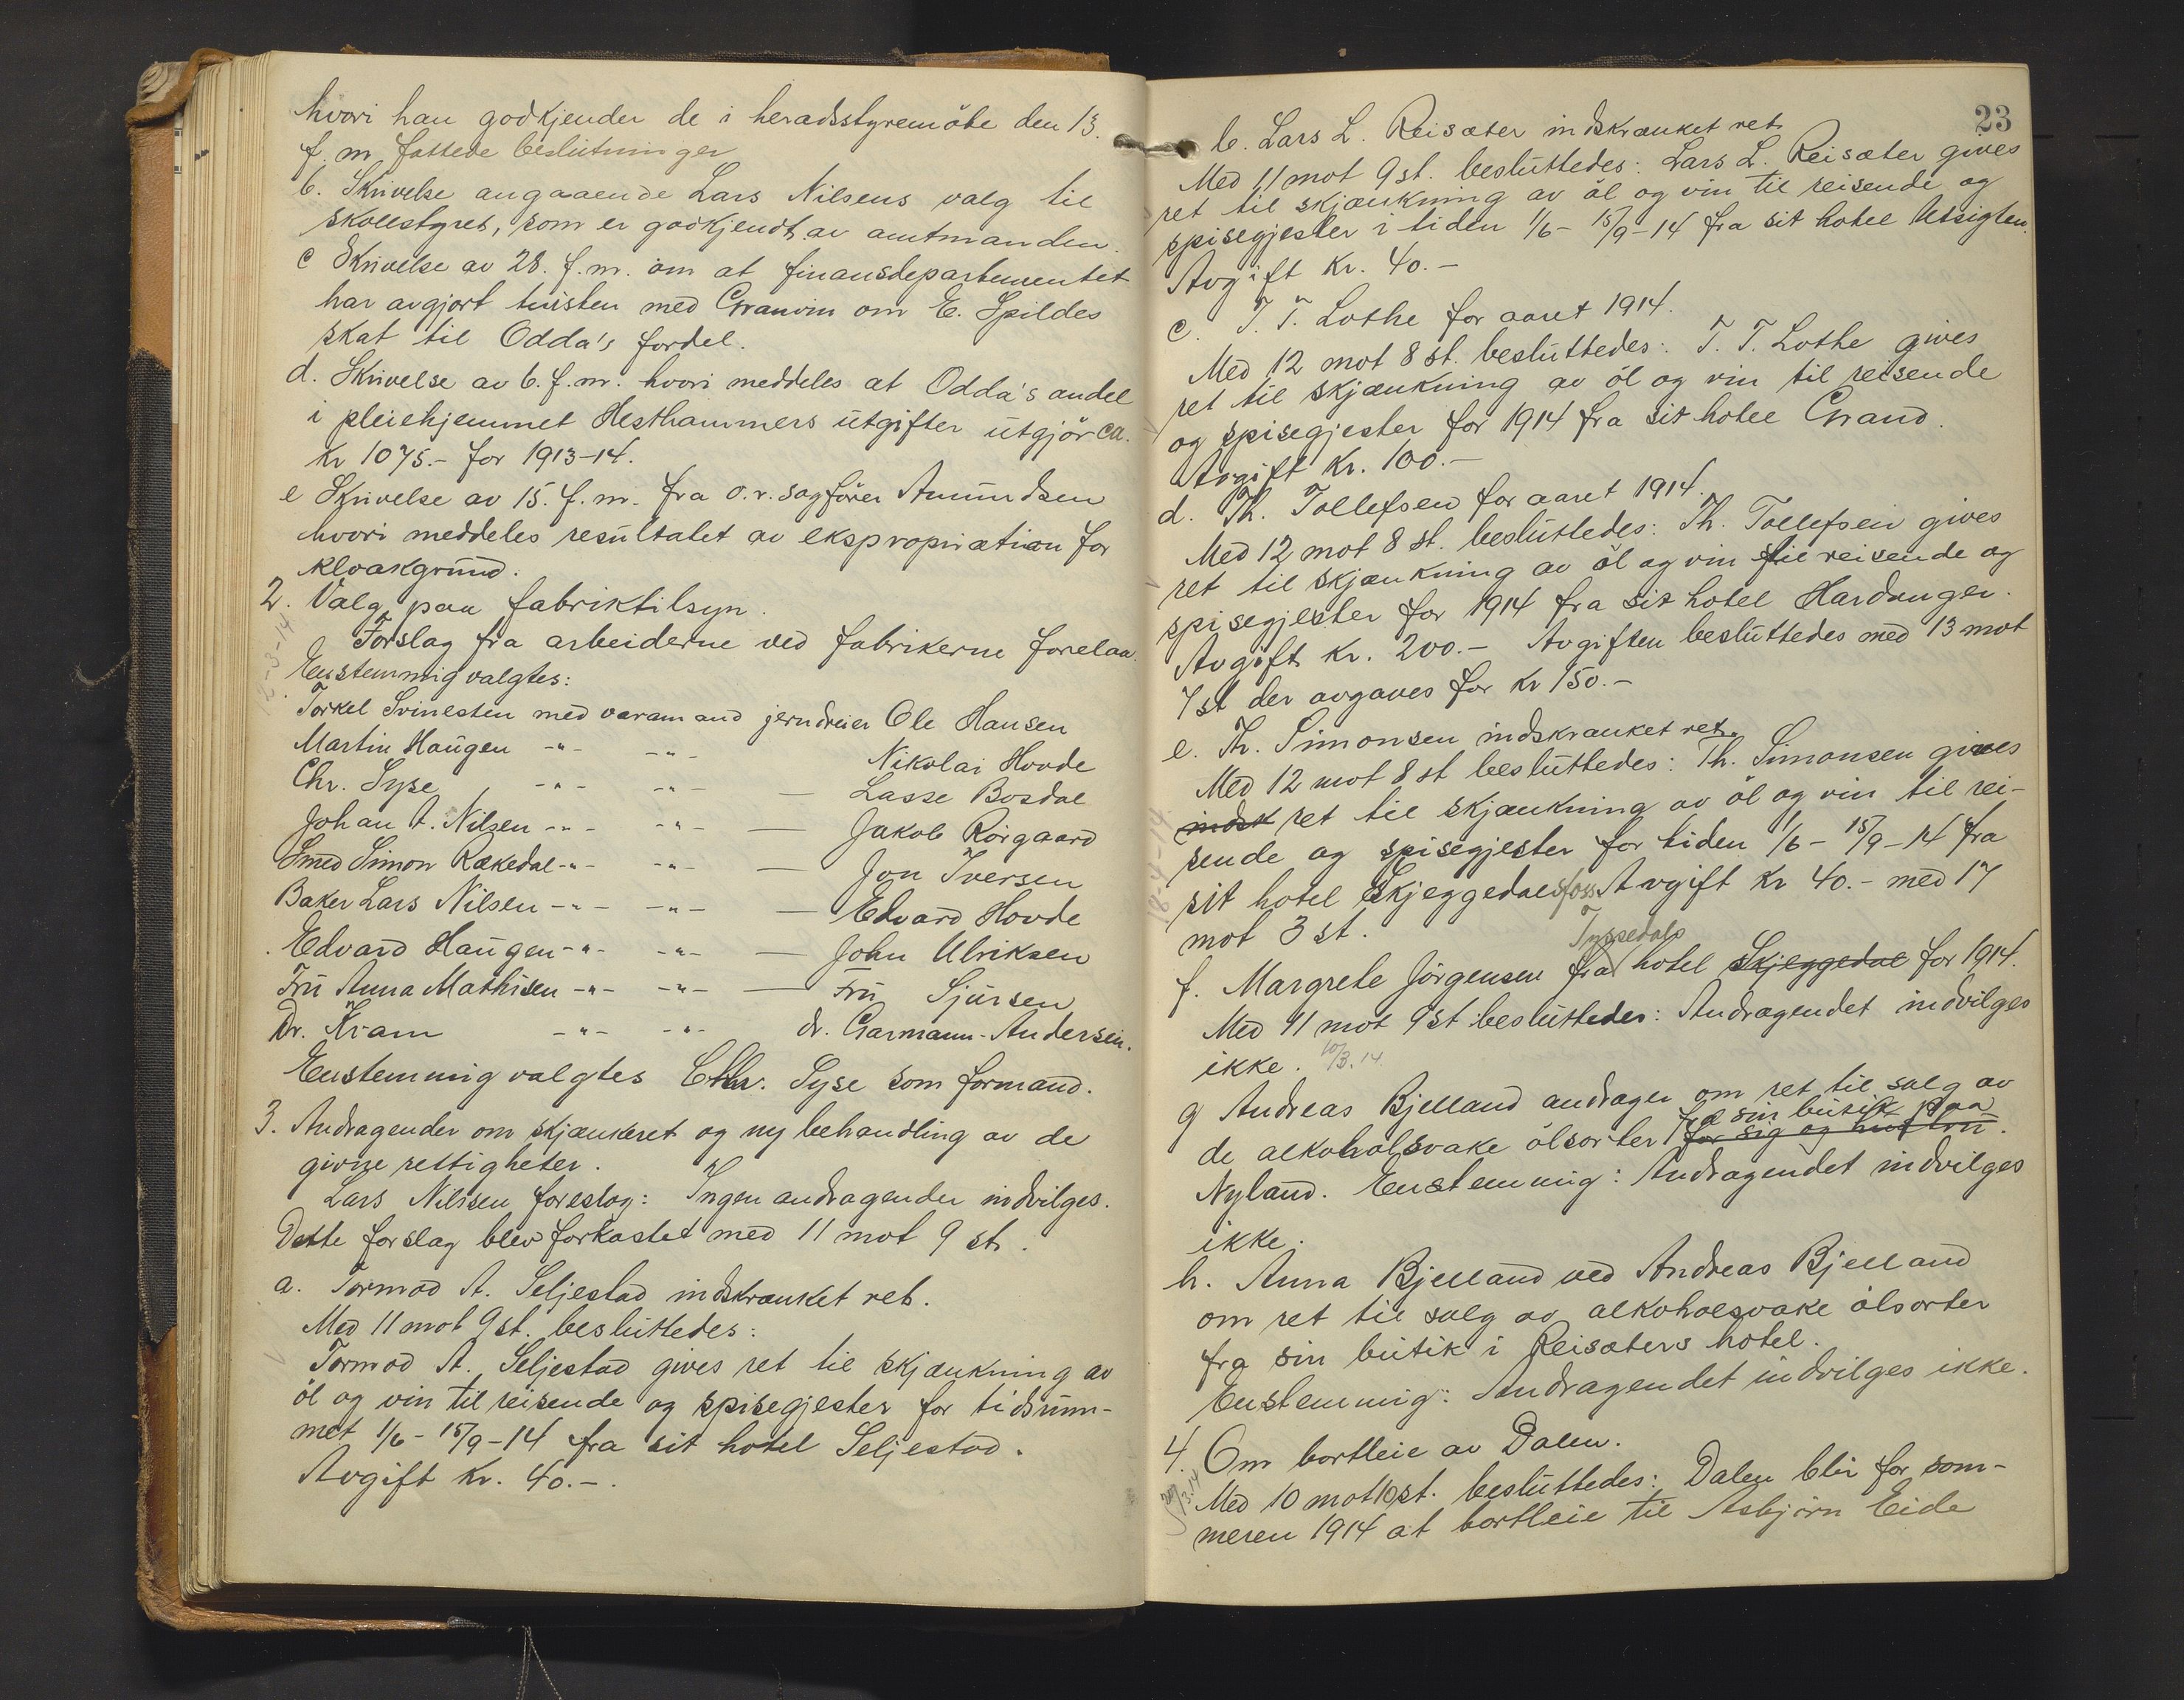 hvori han godkjender de i heradsstyremöte den 13.
f. m. fattede beslutninger
b. Skrivelse angaaende Lars Nilsens valg til
skolestyret, som er godkjendt av amtmanden.
c Skrivelse av 28. f.m. om at finansdepartementet
har avgjort tvisten med Granvin om E. Spildes
skat til Odda's fordel.
d. Skrivelse av 6. f.m. hvori meddeles at Odda's andel
i pleiehjemmet Hesthammers utgifter utgjör ca.
kr 1075.- for 1913-14.
e Skrivelse av 15. f.m. fra o.r. sagförer Amundsen
hvori meddeles resultatet av ekspropriation for
kloakgrund.
2. Valg paa fabriktilsyn.
Forslag fra arbeiderne ved fabrikerne forelaa.
Enstemmig valgtes:
Torkel Svinesten med varamand jerndreier Ole Hansen
Martin Haugen -"- -"- Nikolai Hovde
Chr. Syse -"- -"- — Lasse Bosdal
Johan A. Nilsen -"- -"- — Jakob Rörgaard
Smed Simon Rækedal -"- -"- — Jon Iversen
Baker Lars Nilsen -"- -"- — Edvard Hovde
Edvard Haugen -"- -"- — John Ulriksen
Fru Anna Mathisen -"- -"- — Fru Sjursen
Dr. Kram -"- -"- dr. Garmann-Andersen.
Enstemmig valgtes Chr. Syse som formand.
3. Andragender om skjænkeret og ny behandling av de
givne rettigheter.
Lars Nilsen foreslog: Ingen andragender indvilges.
Dette forslag blev forkastet med 11 mot 9 st.
a. Tormod A. Seljestad indskrænket ret.
Med 11 mot 9 st. besluttedes:
Tormod A. Seljestad gives ret til skjænkning av
öl og vin til reisende og spisegjester for tidsrum-
met 1/6 - 15/9 - 14 fra sit hotel Seljestad.
Avgift kr. 40.-.
23
b. Lars L. Reisæter indskrænket ret.
Med 11 mot 9 st. besluttedes: Lars L. Reisæter gives
ret til skjænkning av öl og vin til reisende og
spisegjester i tiden 1/6 - 15/9 - 14 fra sit hotel Utsigten.
Avgift kr. 40.-
c. T. T. Lothe for aaret 1914.
Med 12 mot 8 st. besluttedes: T. T. Lothe gives
ret til skjænkning av öl og vin til reisende
og spisegjester for 1914 fra sit hotel Grand.
Avgift kr. 100.-
d. Th. Tollefsen for aaret 1914.
Med 12 mot 8 st. besluttedes: Th. Tollefsen gives
ret til skjænkning av öl og vin til reisende og
spisegjester for 1914 fra sit hotel Hardanger.
Avgift kr. 200.- Avgiften besluttedes med 13 mot
7 st der avgaves for kr 150.-
e. Th. Simonsen indskrænket ret.
Med 12 mot 8 st besluttedes: Th. Simonsen gives
indsk ret til skjænkning av öl og vin til rei-
sende og spisegjester for tiden 1/6 - 15/9 - 14 fra
sit hotel Skjeggedalsfoss Avgift kr 40.- med 17
mot 3 st.
Tyssedals
f. Margrete Jörgensen fra hotel Skjeggedal for 1914.
Med 11 mot 9 st besluttedes: Andragendet indvilges
ikke. 10/3.14.
g Andreas Bjelland andrager om ret til salg av
fra sin butik paa
de alkoholsvake ölsorter for sig og hustru.
Nyland. Enstemmig: Andragendet indvilges
ikke.
h. Anna Bjelland ved Andreas Bjelland
om ret til salg av alkoholsvake ölsorter
fra sin butik i Reisæters hotel.
Enstemmig: Andragendet indvilges ikke.
4. Om bortleie av Dalen.
Med 10 mot 10 st. besluttedes: Dalen blir for som-
meren 1914 at bortleie til Asbjörn Eide